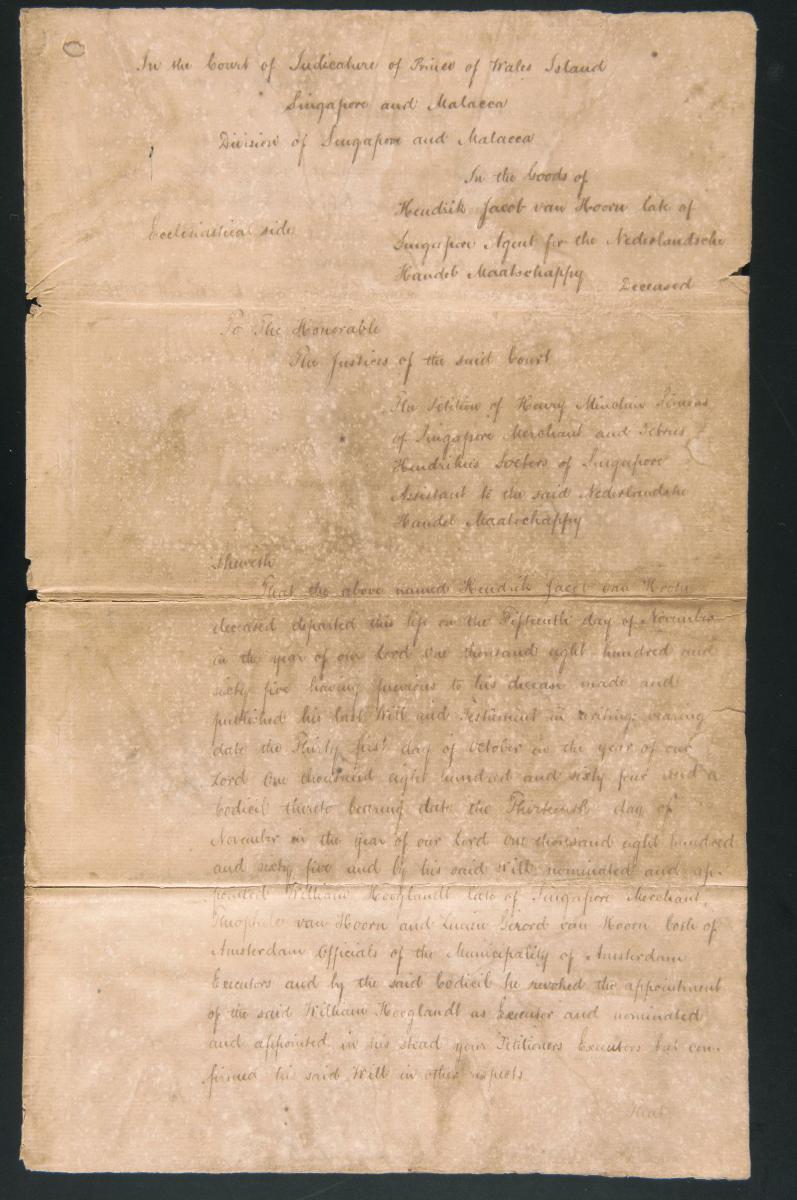 In the Court of Judicature of Prince of Wales Island
Singapore and Malacca
Division of Singapore and Malacca
In the Goods of
Hendrik Jacob van Hoorn late of
Ecclesiastical side
Singapore Agent for the Nederlandsche
Handel Maatschappy
Deceased
To The Honorable
The Justices of the said Court
The Petition of Henry Simons
of Singapore Merchant and
Hendrikus of Singapore
Assistant to the said Nederlandsche
Handel Maatschappy
Sheweth
That the above named Hendrik Jacob van Hoorn
deceased departed this life on the Fifteenth day of November
in the year of our Lord One thousand eight hundred and
sixty five having previous to his decease made and
published his last Will and Testament in writing bearing
date the Thirty first day of October in the year of our
Lord One thousand eight hundred and sixty four and a
Codicil thereto bearing date the Thirteenth day of
November in the year of our lord one thousand eight hundred
and sixty five and by his said Will nominated and ap-
pointed William Hooglandt late of Singapore Merchant,
van Hoorn and Gerord van Hoorn both of
Amsterdam Officials of the Municipality of Amsterdam
Executors and by the said Codicil he revoked the appointment
of the said William Hooglandt as Executor and nominated
and appointed in his stead your Petitioners Executors but con-
firmed his said Will in other respects
That